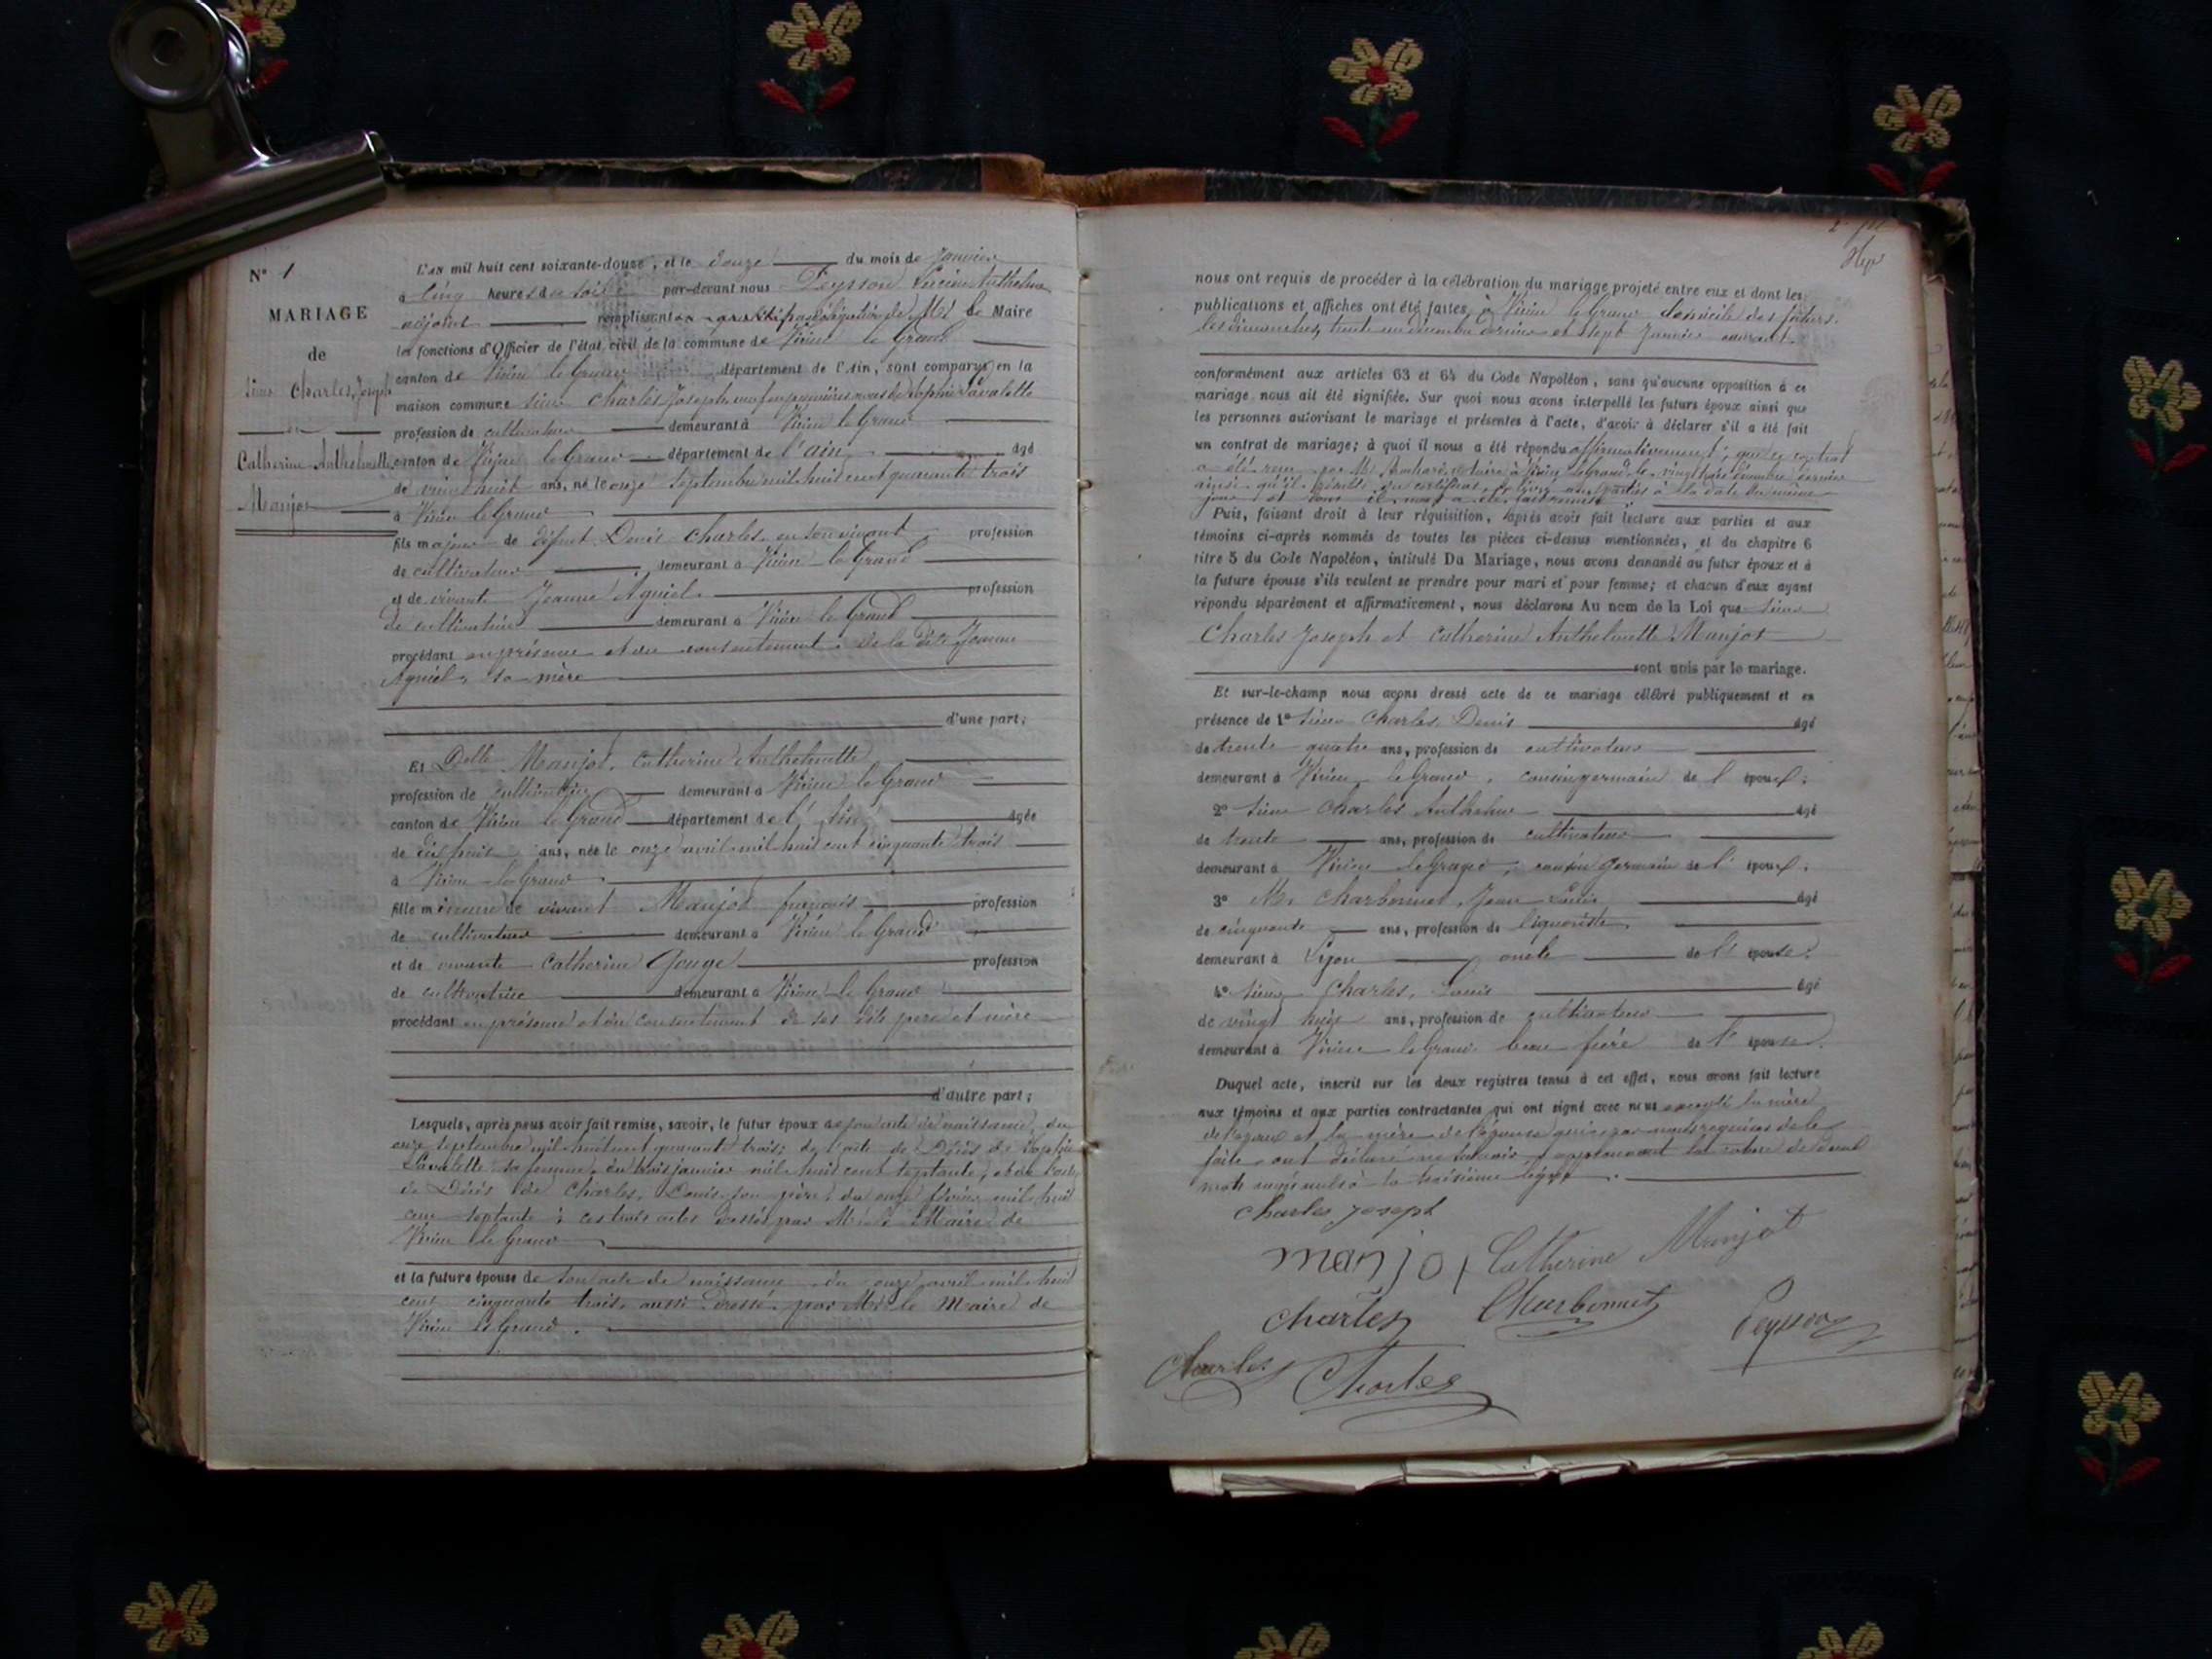 N° 1
MARIAGE
de
sieur Charles, Joseph
et
Catherine Anthelmette
Manjot
L'an mil huit cent soixante-douze, et le douze du mois de Janvier
à cinq heures du soir par-devant nous Peysson Lucien Anthelme
adjoint remplissant par délégation de Mr le Maire
les fonctions d'Officier de l'état civil de la commune de Virieu le Grand
canton de Virieu le Grand département de l'Ain, sont comparus en la
maison commune sieur Charles Joseph, veuf en premières noces de Sophie Lavalette
profession de cultivateur demeurant à Virieu le Grand
canton de Virieu le Grand département de l'ain âgé
de vingt huit ans, né le onze septembre mil huit cent quarante trois
à Virieu le Grand
fils majeur de défunt Denis Charles, en son vivant profession
de cultivateur demeurant à Virieu le Grand
et de vivante Jeanne Aguiel profession
de cultivatrice demeurant à Virieu le Grand
procédant en présence et du consentement de la dite Jeanne
Aguiel, sa mère
d'une part;
Et Delle Manjot, Catherine Anthelmette
profession de cultivatrice demeurant à Virieu le Grand
canton de Virieu le Grand département de l'Ain âgée
de dix huit ans, née le onze avril mil huit cent cinquante trois
à Virieu le Grand
fille mineure de vivant Manjot françois profession
de cultivateur demeurant à Virieu le Grand
et de vivante Catherine Gouge profession
de cultivatrice demeurant à Virieu le Grand
procédant en présence et du consentement de ses dits père et mère
d'autre part;
Lesquels, après nous avoir fait remise, savoir, le futur époux de son acte de naissance, du
onze septembre mil huit cent quarante trois; de l'acte de Décès de Sophie
Lavalette sa femme, du trois janvier mil huit cent septante, et de l'acte
de Décès de Charles, Denis son père, du onze février mil huit
cent septante; ces trois actes dressés par Mr le Maire de
Virieu le Grand
et la future épouse de son acte de naissance du onze avril mil huit
cent cinquante trois, aussi dressé par Mr le Maire de
Virieu le Grand.
nous ont requis de procéder à la célébration du mariage projeté entre eux et dont les
publications et affiches ont été faites, à Virieu le Grand domicile des futurs,
les dimanches, trente un décembre dernier et sept Janvier courant.
conformément aux articles 63 et 64 du Code Napoléon, sans qu'aucune opposition à ce
mariage nous ait été signifiée. Sur quoi nous avons interpellé les futurs époux ainsi que
les personnes autorisant le mariage et présentes à l'acte, d'avoir à déclarer s'il a été fait
un contrat de mariage; à quoi il nous a été répondu affirmativement; que ce contrat
a été reçu par Me notaire à Virieu le Grand, le vingt trois décembre dernier
ainsi qu'il résulte du certificat, délivré aux parties à la date du même
jour et dont il nous a été fait remise.
Puis, faisant droit à leur réquisition, après avoir fait lecture aux parties et aux
témoins ci-après nommés de toutes les pièces ci-dessus mentionnées, et du chapitre 6
titre 5 du Code Napoléon, intitulé Du Mariage, nous avons demandé au futur époux et à
la future épouse s'ils veulent se prendre pour mari et pour femme; et chacun d'eux ayant
répondu séparément et affirmativement, nous déclarons Au nom de la Loi que sieur
Charles Joseph et Catherine Anthelmette Manjot
sont unis par le mariage.
Et sur-le-champ nous avons dressé acte de ce mariage célébré publiquement et en
présence de 1° sieur Charles, Denis âgé
de trente quatre ans, profession de cultivateur
demeurant à Virieu le Grand, cousin germain de l'époux;
2° sieur Charles Anthelme âgé
de trente ans, profession de cultivateur
demeurant à Virieu le Grand, cousin germain de l'époux;
3° Mr Charbonnet, Jean Louis âgé
de cinquante ans, profession de liquoriste
demeurant à Lyon oncle de l'épouse;
4° sieur Charles, Louis âgé
de vingt huit ans, profession de cultivateur
demeurant à Virieu le Grand beau frère de l'épouse.
Duquel acte, inscrit sur les deux registres tenus à cet effet, nous avons fait lecture
aux témoins et aux parties contractantes qui ont signé avec nous excepté la mère
de l'époux et la mère de l'épouse qui par nous requises de le
faire ont déclaré ne savoir, approuvant la rature de
mots nuls à la troisième ligne.
Charles Joseph
manjot Catherine Manjot
Charles Charbonnet Peysson
Charles Charles